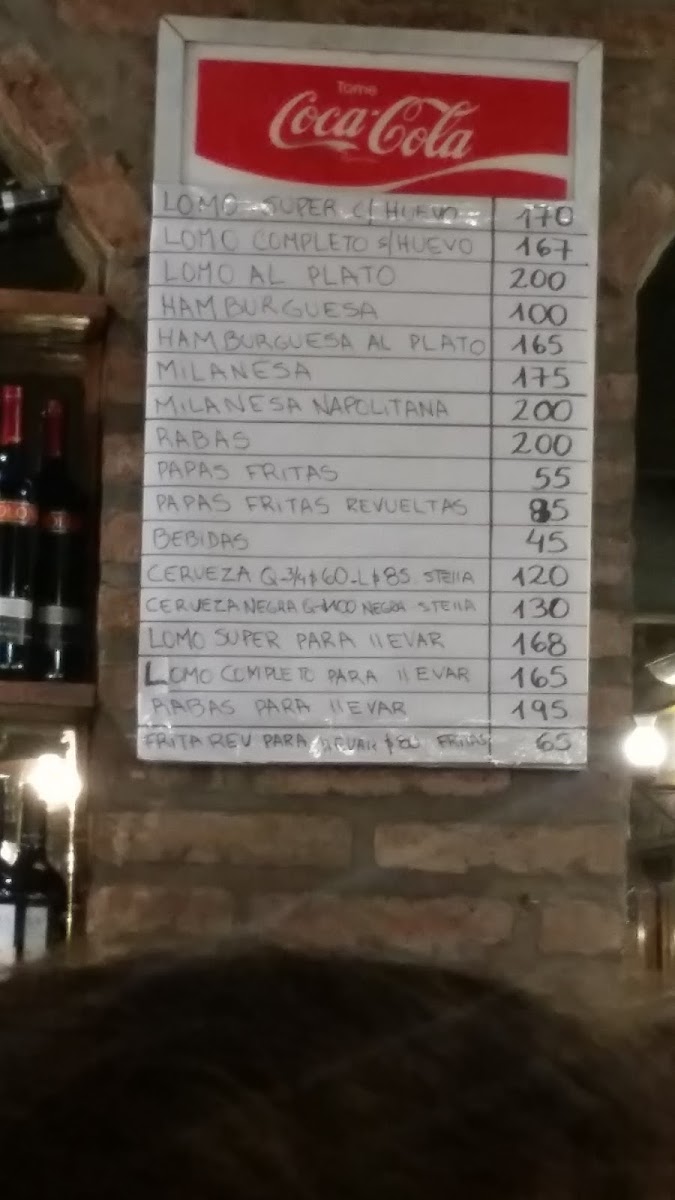 Tome
Coca-Cola
LOMO SUPER C/ HUEVO 170
LOMO COMPLETO S/HUEVO 167
LOMO AL PLATO 200
HAMBURGUESA 100
HAMBURGUESA AL PLATO 165
MILANESA 175
MILANESA NAPOLITANA 200
RABAS 200
PAPAS FRITAS 55
PAPAS FRITAS REVUELTAS 85
BEBIDAS 45
CERVEZA Q-3/4$60-L$85 STEllA 120
CERVEZA NEGRA NEGRA STEllA 130
LOMO SUPER PARA llEVAR 168
LOMO COMPLETO PARA llEVAR 165
RABAS PARA llEVAR 195
FRITA REV PARA llEVAR FRITAS 65